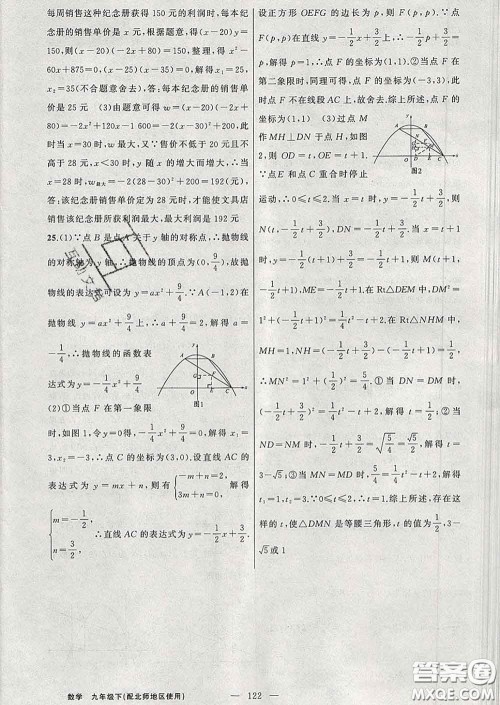 每周销售这种纪念册获得 150 元的利润时,每本纪
念册的销售单价是 x 元,根据题意得(x-20)(-2x+
80)=150,整理,得 x²-
60x+875=0,(x-30)²=25,解得,x₁=25,
x₂=35(不合题意舍去);答:每本纪念册的
销售单价是 25 元 (3)由题意可得 w=(x-20)(-2x+
80)=-2x²+120x-1600=-2(x-30)²+200,此时
当 x=30 时,w最大,又∵售价不低于 20 元且不
高于 28 元,x<30 时,y 随 x 的增大而增大,∴当 x
=28 时,w最大=-2(28-30)²+200=192(元),
答:该纪念册销售单价定为 28 元时,才能使文具店
销售该纪念册所获利润最大,最大利润是 192 元
25.(1)∵点 B 是点 A 关于 y 轴的对称点,∴抛物线
的对称轴为 y 轴,∴抛物线的顶点为(0,9/4),故抛
物线的表达式可设为 y=ax²+9/4.∵A(-1,2)在
抛物线 y=ax²+9/4上,∴a+9/4=2,解得 a=
-1/4,∴抛物线的函数表
达式为 y=-1/4x²+9/4
图1
(2)①当点 F 在第一象限
时,如图 1,令 y=0 得,-1/4x²+9/4=0,解得 x₁=
3,x₂=-3,∴点 C 的坐标为(3,0).设直线 AC 的
表达式为 y=mx+n,则有{-m+n=2, 3m+n=0, 解得
{m=-1/2, n=3/2, ∴直线 AC 的表达式为 y=-1/2x+3/2.
设正方形 OEFG 的边长为 p,则 F(p,p).∵点
F(p,p)在直线 y=-1/2x+3/2上,∴-1/2p+3/2=p,
解得 p=1,∴点 F 的坐标为(1,1);②当点 F 在
第二象限时,同理可得,点 F 的坐标为(-3,3),此
时点 F 不在线段 AC 上,故舍去.综上所述,点 F
的坐标为(1,1) (3)过点 M
作 MH⊥DN 于点 H,如图
2,则 OD=t,OE=t+1.
∵点 E 和点 C 重合时停止
图2
运动,∴0≤t≤2.当 x=t 时,y=-1/2t+3/2,则
N(t,-1/2t+3/2),DN=-1/2t+3/2.当 x=t+1
时,y=-1/2(t+1)+3/2=-1/2t+1,则 M(t+1,
-1/2t+1),ME=-1/2t+1.在 Rt△DEM 中,DM²
=1²+(-1/2t+1)²=1/4t²-t+2.在 Rt△NHM 中,
MH=1,NH=(-1/2t+3/2)-(-1/2t+1)=1/2,
∴MN²=1²+(1/2)²=5/4.①当 DN=DM 时,
(-1/2t+3/2)²=1/4t²-t+2,解得 t=1/2;②当
ND=NM 时,-1/2t+3/2=√(5/4)=√5/2,解得 t=
3-√5;③当 MN=MD 时,5/4=1/4t²-t+2,解得
t₁=1,t₂=3.∵0≤t≤2,∴t=1.综上所述,存在这
样的 t,使△DMN 是等腰三角形,t 的值为1/2,3-
√5或1
数学 九年级下(配北师地区使用)
— 122 —
答案圈
MXQE.COM